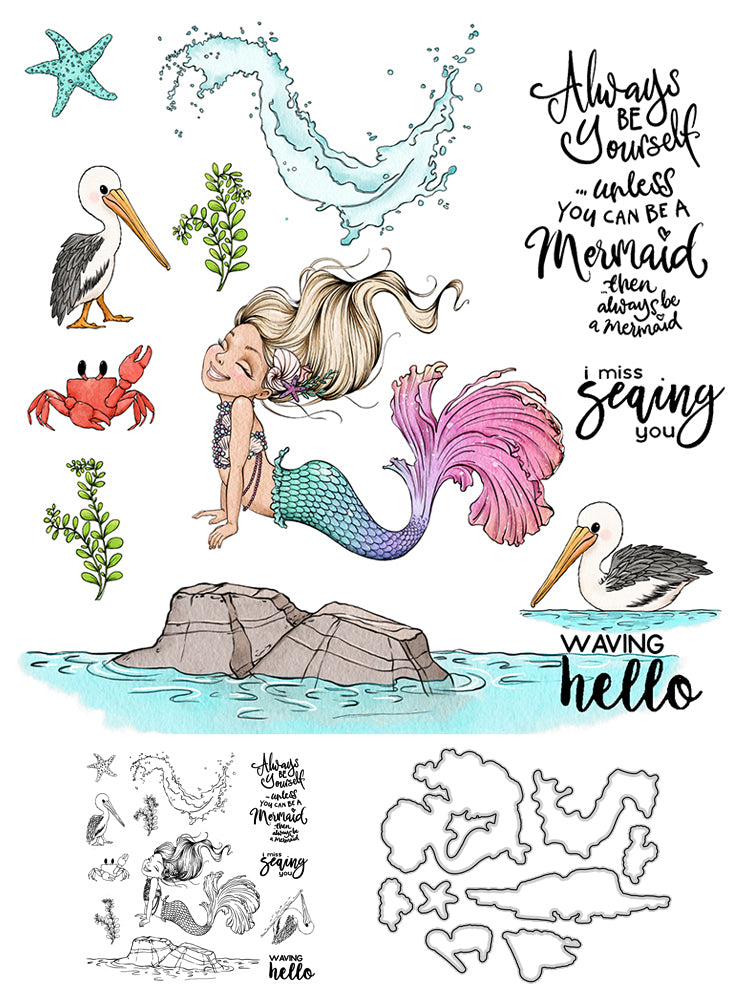 Always
BE
Yourself
... unless
YOU CAN BE A
Mermaid
then
... always be
a mermaid
i miss
seaing
you
WAVING
hello
Always
BE
Yourself
... unless
YOU CAN BE A
Mermaid
then
... always be
a mermaid
i miss
seaing
you
WAVING
hello